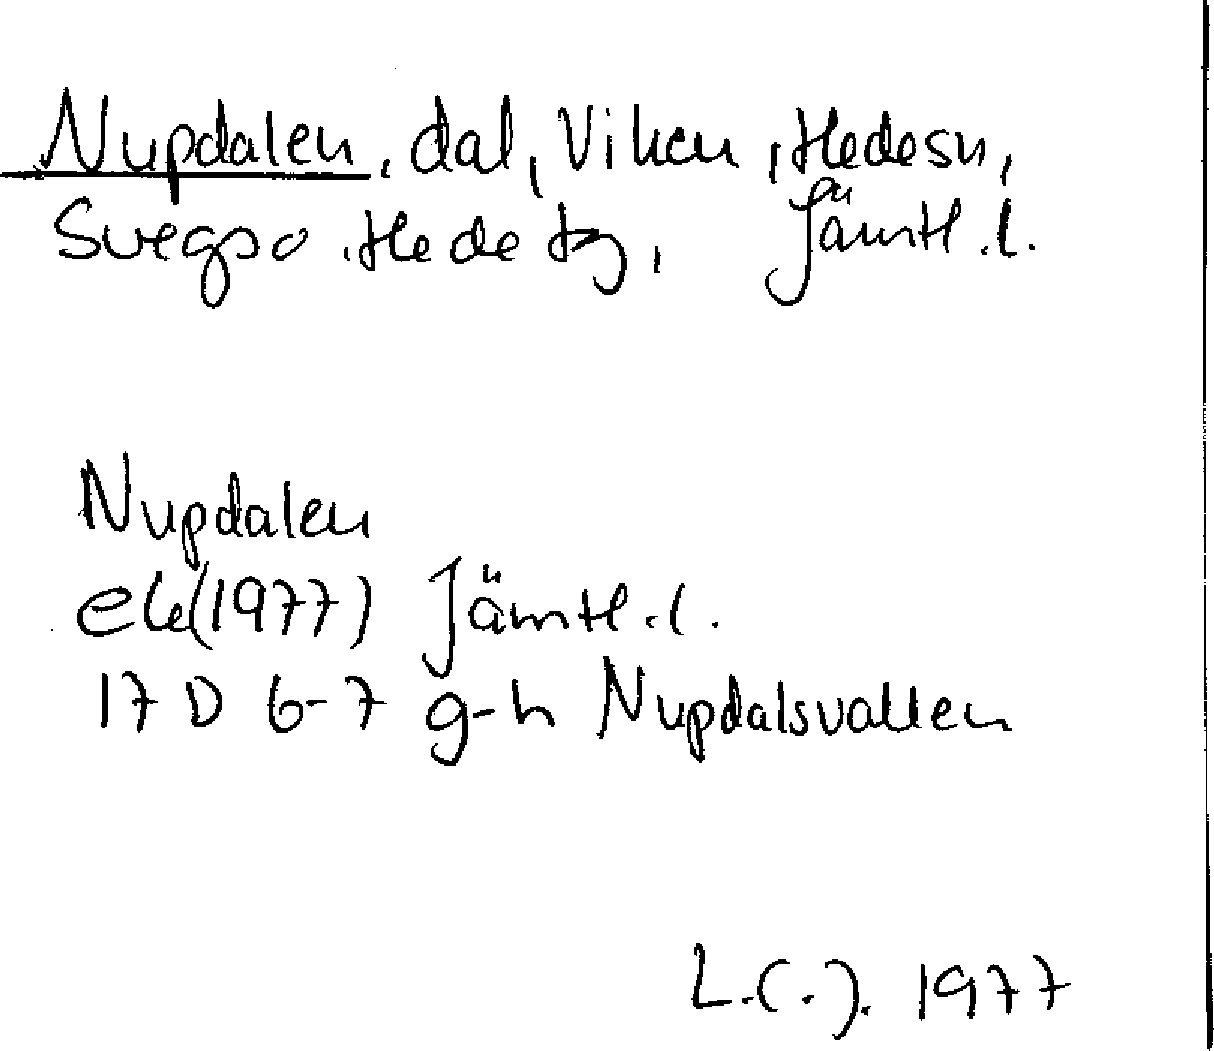 Nupdalen, dal, Viken, Hedesn,
Svegso, Hede tg, Jämtl.l.
Nupdalen
ek(1977) Jämtl.l.
17 D 6-7 g-h Nupdalsvallen
1977